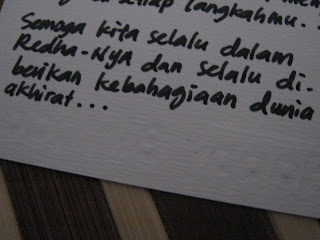 setiap langkahmu..
Semoga kita selalu dalam
Redha-NYA dan selalu di-
berikan kebahagiaan dunia
akhirat...